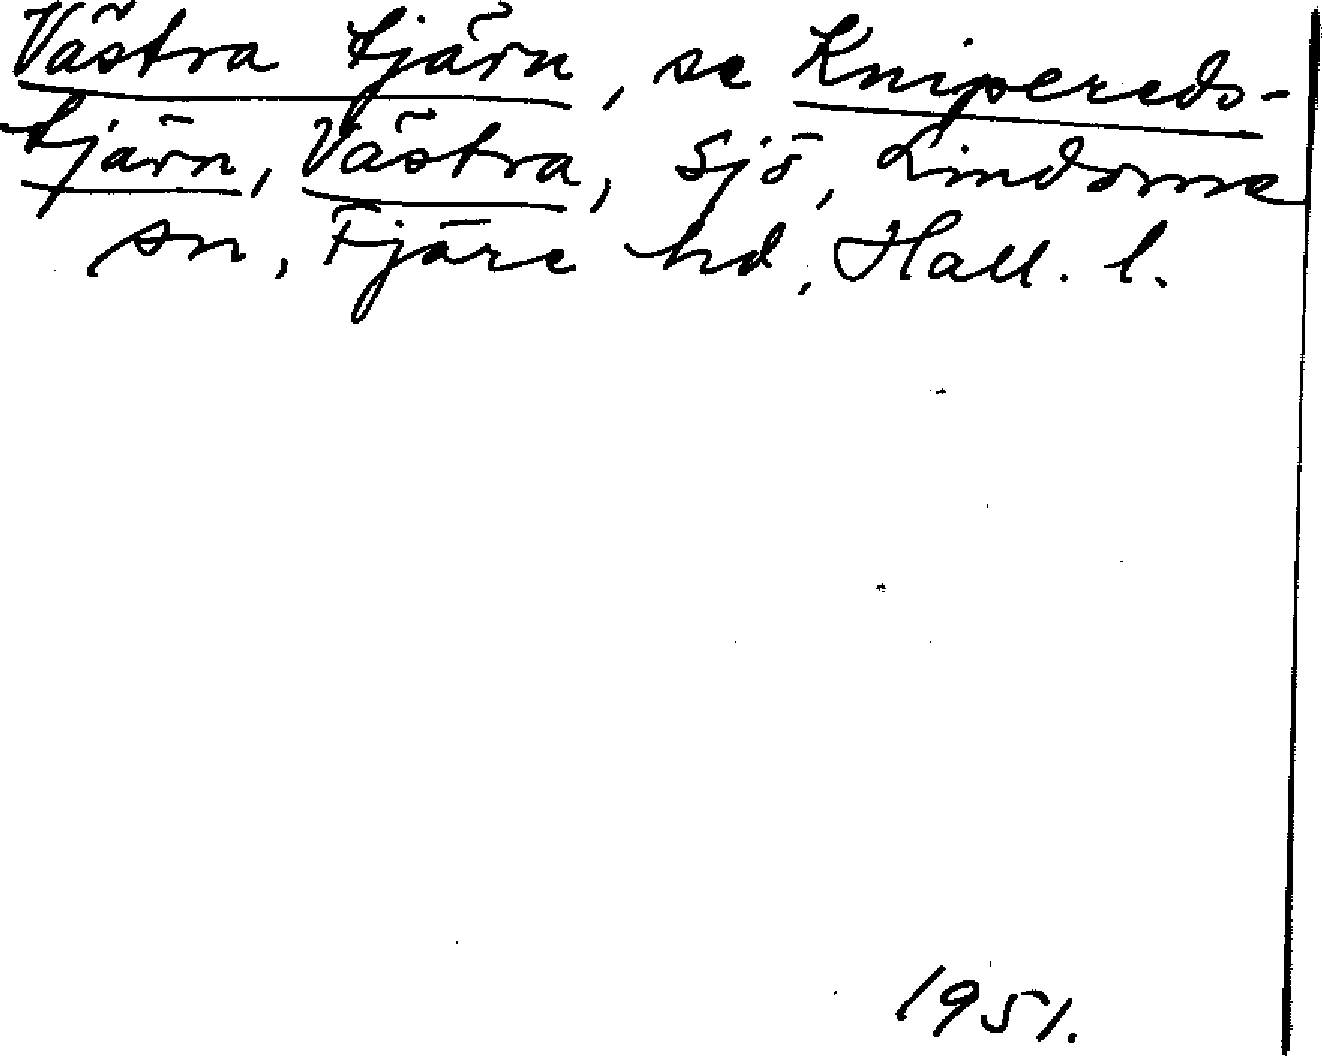 Västra tjärn, se Knipereds-
tjärn, Västra, sjö, Lindome
sn, Fjäre hd, Hall. l.
1951.